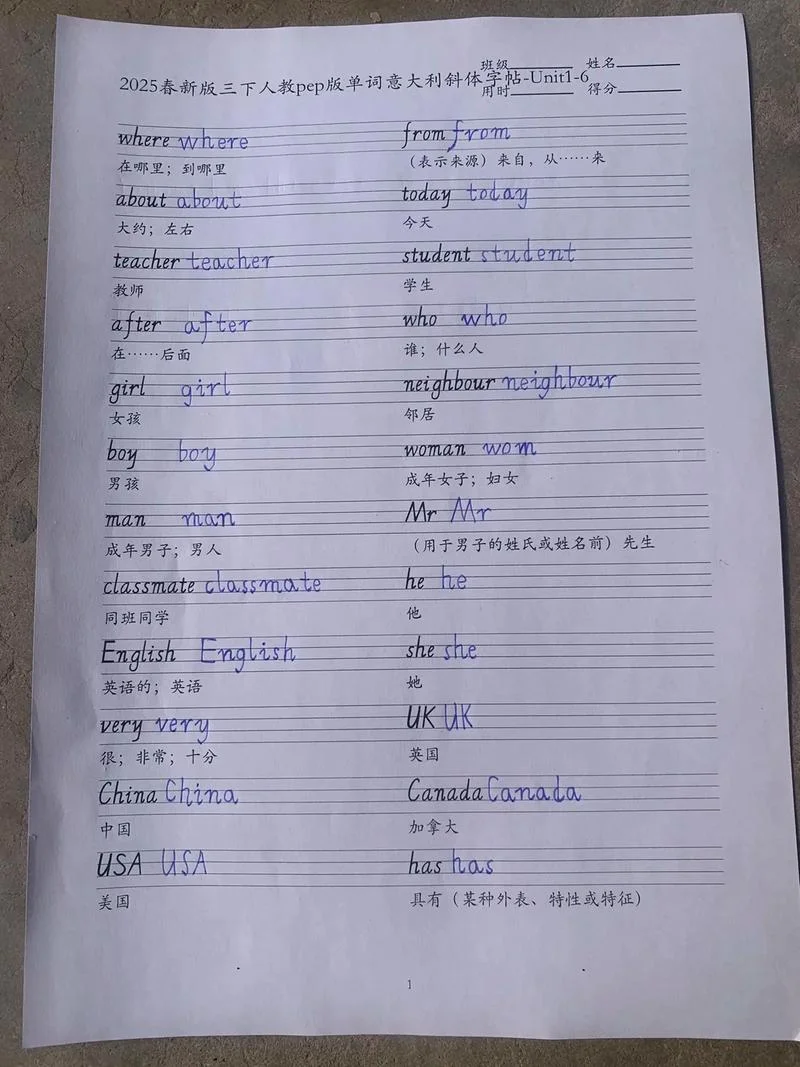 班级________ 姓名________
2025春新版三下人教pep版单词意大利斜体字帖-Unit1-6
用时________ 得分________
where where from from
在哪里；到哪里 （表示来源）来自，从……来
about about today today
大约；左右 今天
teacher teacher student student
教师 学生
after after who who
在……后面 谁；什么人
girl girl neighbour neighbour
女孩 邻居
boy boy woman wom
男孩 成年女子；妇女
man man Mr Mr
成年男子；男人 （用于男子的姓氏或姓名前）先生
classmate classmate he he
同班同学 他
English English she she
英语的；英语 她
very very UK UK
很；非常；十分 英国
China China Canada Canada
中国 加拿大
USA USA has has
美国 具有（某种外表、特性或特征）
1